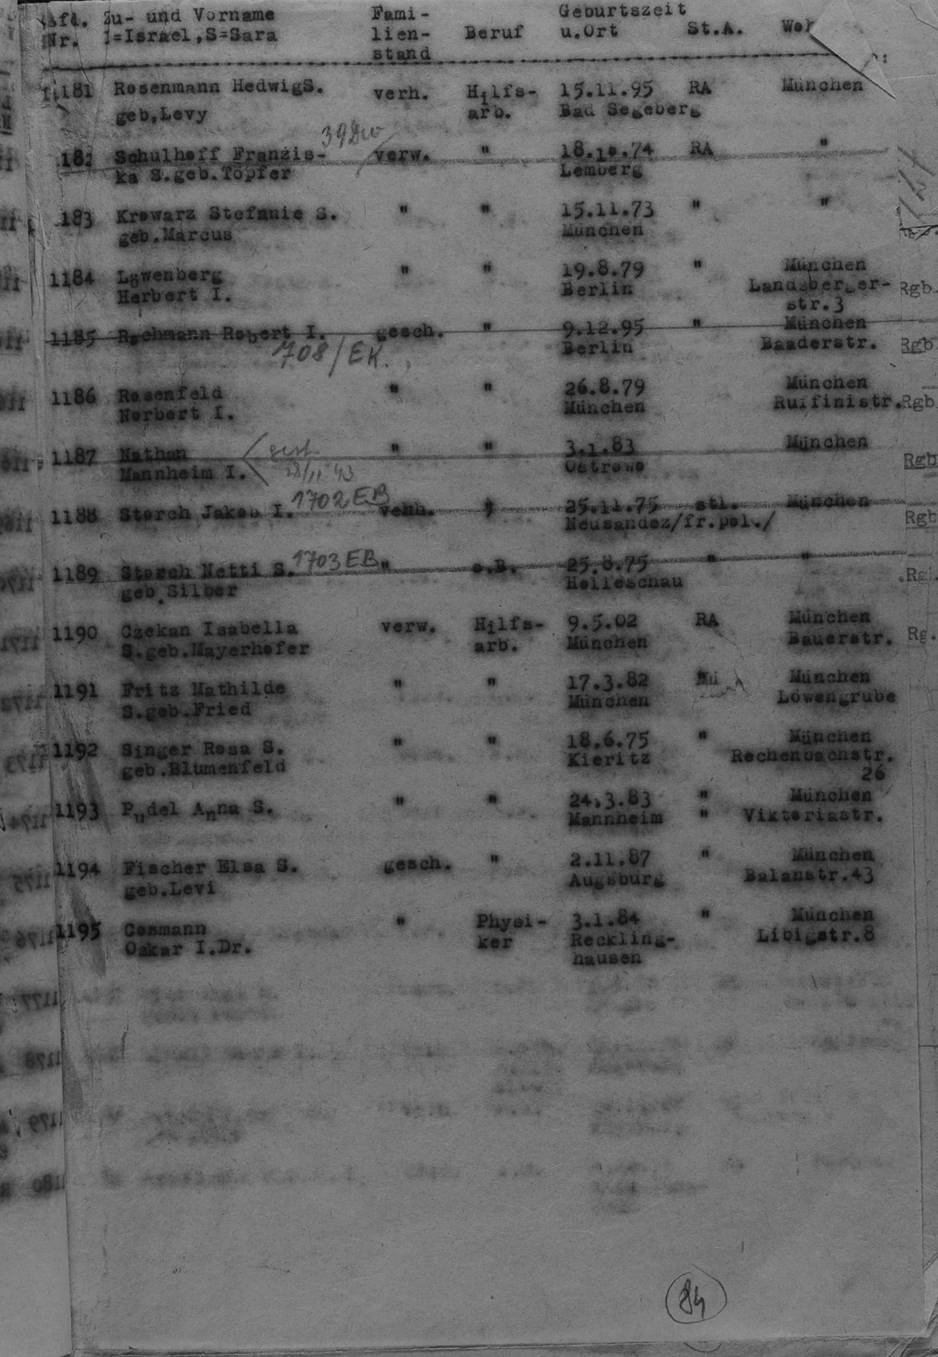 Zu- und Vorname Fami- Geburtszeit
Nr. I=Israel,S=Sara lien- Beruf u.Ort St.A.
stand
1181 Rosenmann HedwigS. verh. Hilfs- 15.11.95 RA München
geb.Levy arb. Bad Segeberg
182 Schulhoff Franzis- verw. " 18.10.74 RA "
ka S.geb.Töpfer Lemberg
183 Krewarz Stefanie S. " " 15.11.73 " "
geb.Marcus München
1184 Löwenberg " " 19.8.79 " München
Herbert I. Berlin Landsberger- Rgb.
str.3
1185 Rechmann Robert I. gesch. " 9.12.95 " München
708/EK. Berlin Baaderstr. Rgb
1186 Rosenfeld " " 26.8.79 München
Norbert I. München Ruffinistr. Rgb
1187 Nathan " " 3.1.83 München
Mannheim I. Ostrowo Rgb
1702 EB
1188 Storch Jakob I. verh. 25.11.75 stl. München
Neusandez/fr.pol./ Rgb
1703 EB
1189 Storch Netti S. " o.B. 25.8.75 " "
geb.Silber Holleschau Rg
1190 Czekan Isabella verw. Hilfs- 9.5.02 RA München
S.geb.Mayerhofer arb. München Bauerstr. Rg.
1191 Fritz Mathilde " " 17.3.82 München
S.geb.Fried München Löwengrube
1192 Singer Rosa S. " " 18.6.75 " München
geb.Blumenfeld Kieritz Rechenbachstr.
26
1193 Pudel Anna S. " " 24.3.83 " München
Mannheim " Viktoriastr.
1194 Fischer Elsa S. gesch. " 2.11.87 " München
geb.Levi Augsburg Balanstr.43
1195 Cosmann " Physi- 3.1.84 " München
Oskar I.Dr. ker Reckling- Libigstr.8
hausen
84